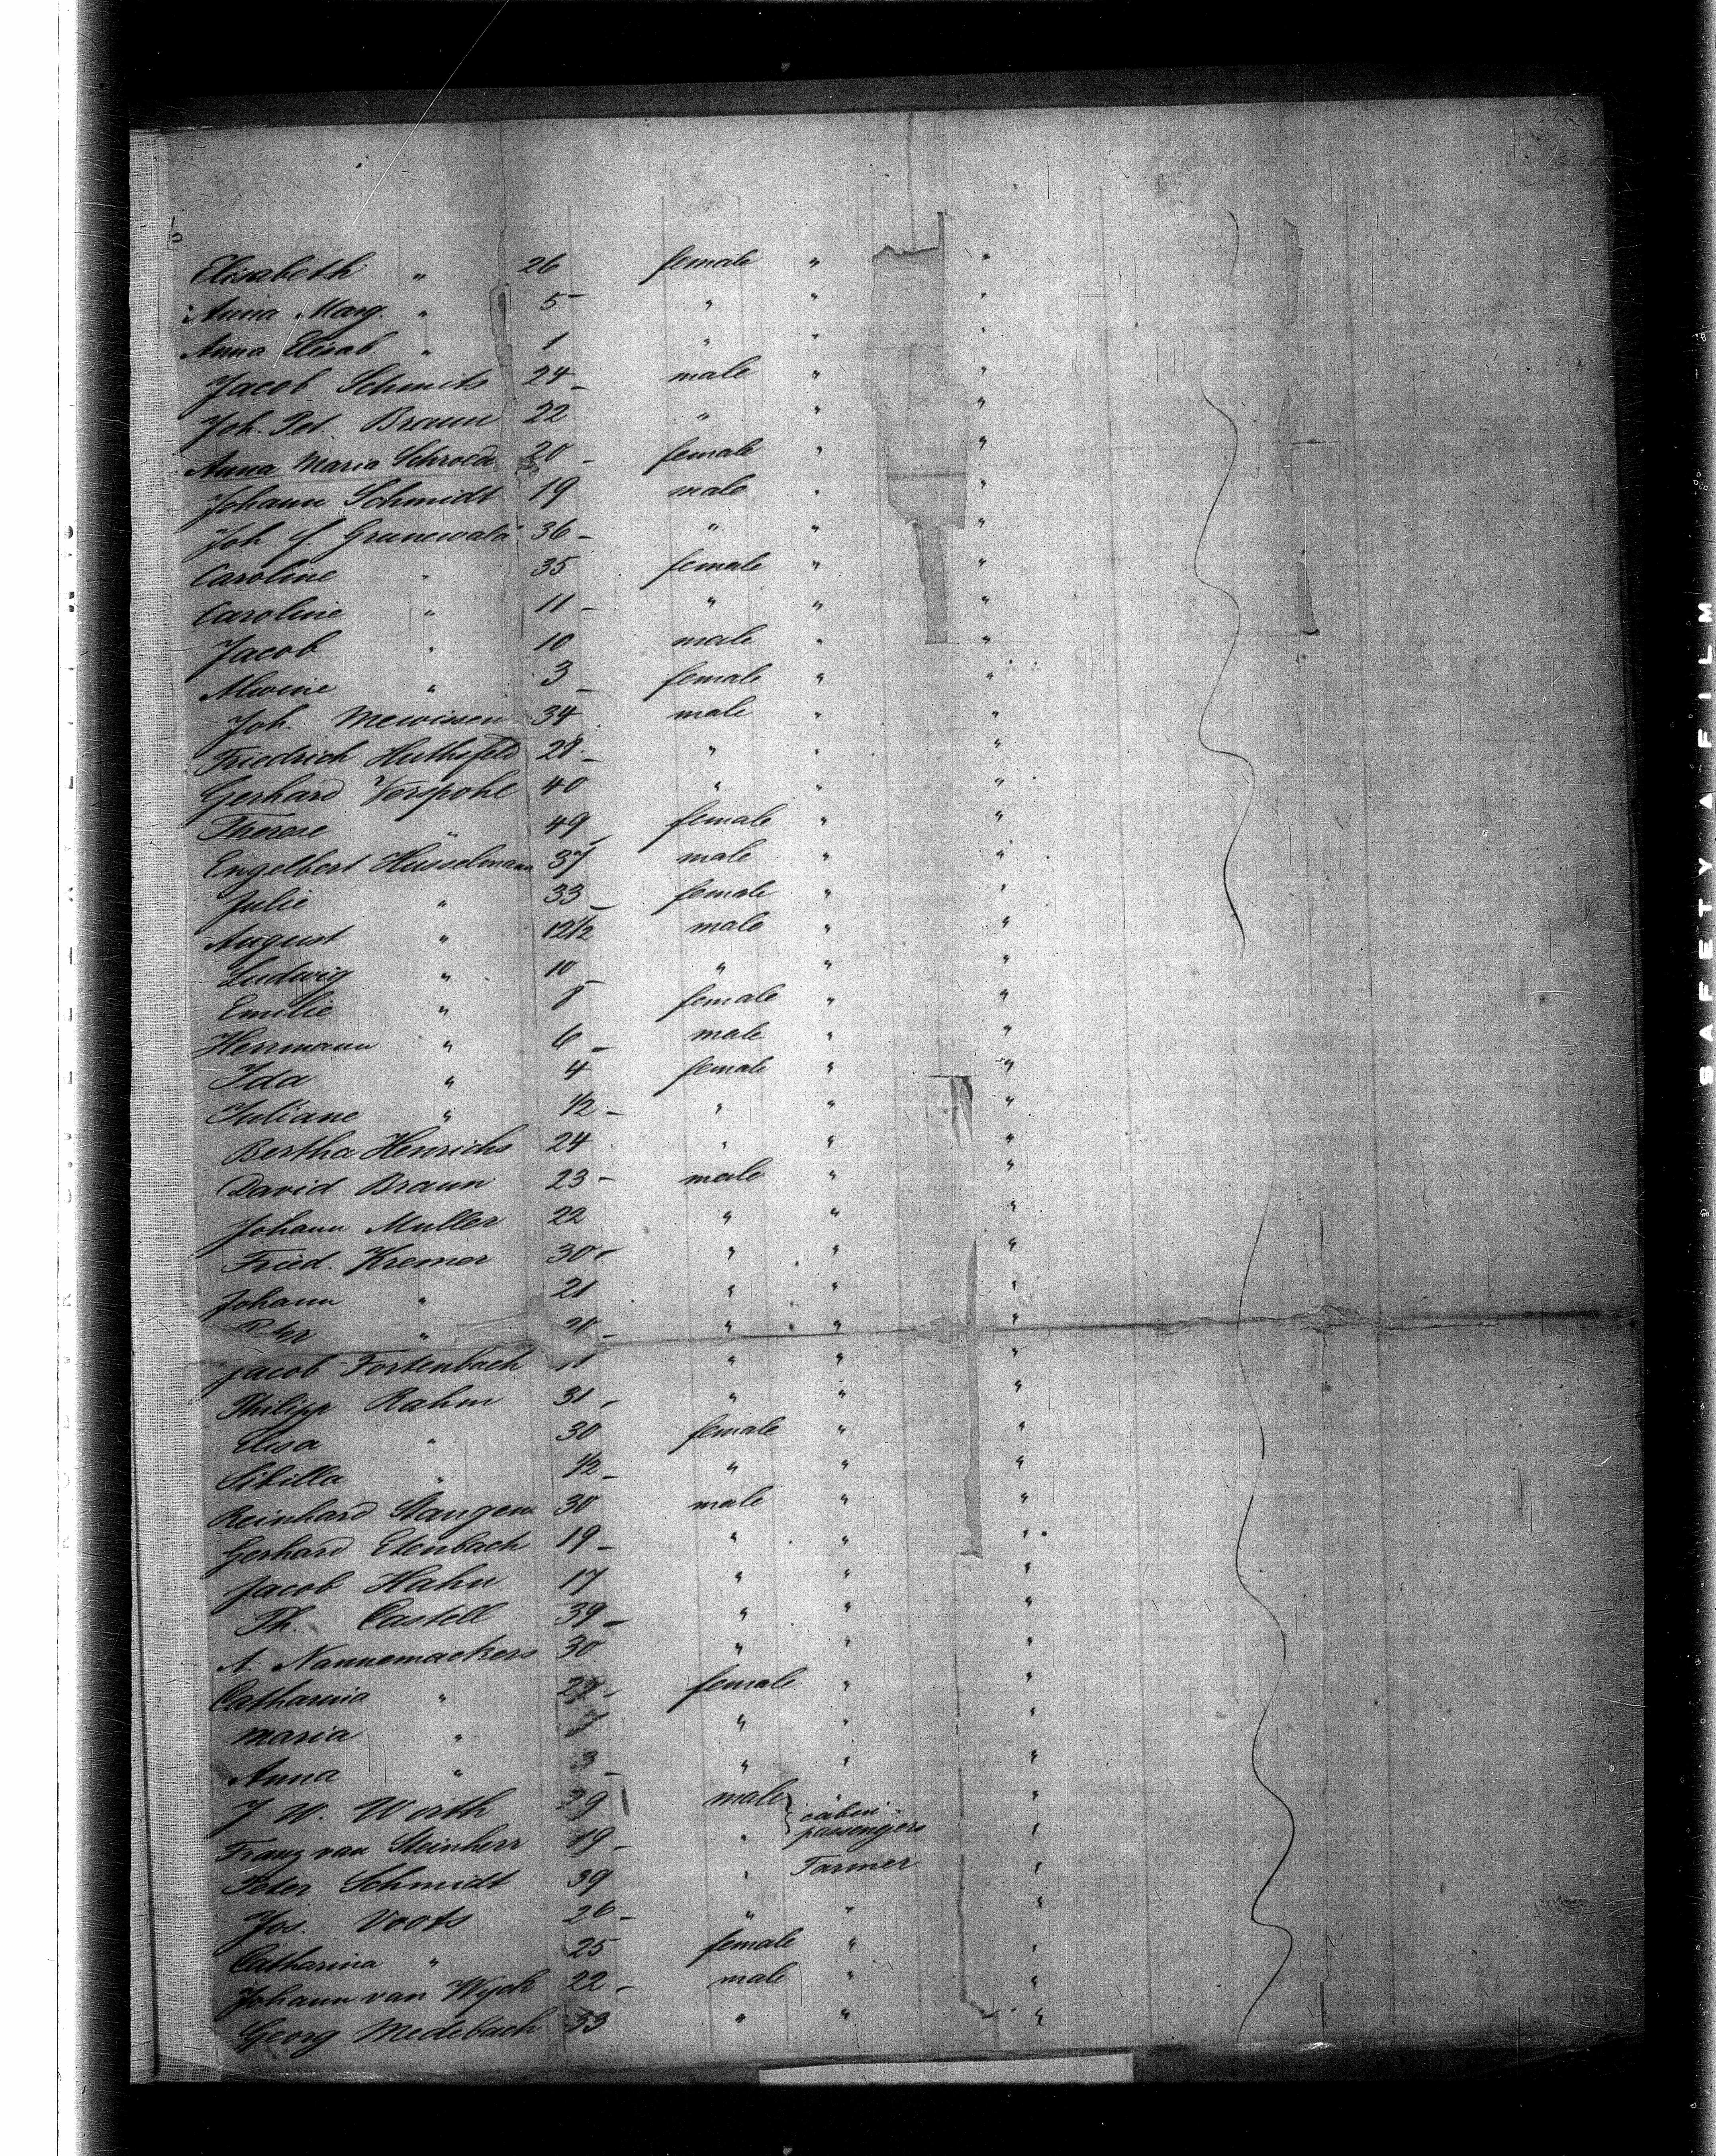 Elisabeth " 26 female " "
Anna Marg. " 5 " " "
Anna Elisab. " 1 " " "
Jacob Schmits 24 male " "
Joh. Pet. Braun 22 " " "
Anna Maria Schroed 20 female " "
Johann Schmidt 19 male " "
Joh f. Grunewald 36 " " "
Caroline " 35 female " "
Caroline " 11 " " "
Jacob " 10 male " "
Alwine " 3 female " "
Joh. Mewissen 34 male " "
Friedrich Huthsfeld 28 " " "
Gerhard Verspohl 40 " " "
Therese " 49 female " "
Engelbert Husselmann 37 male " "
Julie " 33 female " "
August " 12 1/2 male " "
Ludwig " 10 " " "
Emilie " 8 female " "
Herrmann " 6 male " "
Ida " 4 female " "
Juliane " 1/2 " " "
Bertha Henrichs 24 " " "
David Braun 23 male " "
Johann Muller 22 " " "
Fried. Kremer 30 " " "
Johann " 21 " " "
Peter " " " "
Jacob Fortenbach " " "
Philipp Rahm 31 " " "
Elisa " 30 female " "
Sibilla " 1/2 " " "
Reinhard Stangen 30 male " "
Gerhard Etenbach 19 " " "
Jacob Hahn 17 " " "
Th. Castell 39 " " "
A. Nannemackers 30 " " "
Catharina " female " "
Maria " " " "
Anna " 3 " " "
J. W. Wirth 29 male " "
cabin
Franz van Steinherr 19 " passengers "
Peter Schmidt 39 " Farmer "
Jos. Voots 26 " " "
Catharina " 25 female " "
Johann van Wyck 22 male " "
Georg Medebach 53 " " "
SAFETY A FILM